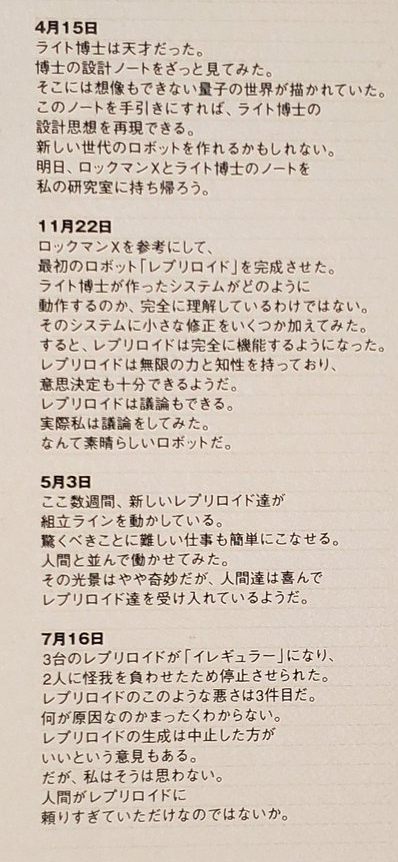 4月15日
ライト博士は天才だった。
博士の設計ノートをざっと見てみた。
そこには想像もできない量子の世界が描かれていた。
このノートを手引きにすれば、ライト博士の
設計思想を再現できる。
新しい世代のロボットを作れるかもしれない。
明日、ロックマンXとライト博士のノートを
私の研究室に持ち帰ろう。
11月22日
ロックマンXを参考にして、
最初のロボット「レプリロイド」を完成させた。
ライト博士が作ったシステムがどのように
動作するのか、完全に理解しているわけではない。
そのシステムに小さな修正をいくつか加えてみた。
すると、レプリロイドは完全に機能するようになった。
レプリロイドは無限の力と知性を持っており、
意思決定も十分できるようだ。
レプリロイドは議論もできる。
実際私は議論をしてみた。
なんて素晴らしいロボットだ。
5月3日
ここ数週間、新しいレプリロイド達が
組立ラインを動かしている。
驚くべきことに難しい仕事も簡単にこなせる。
人間と並んで働かせてみた。
その光景はやや奇妙だが、人間達は喜んで
レプリロイド達を受け入れているようだ。
7月16日
3台のレプリロイドが「イレギュラー」になり、
2人に怪我を負わせたため停止させられた。
レプリロイドのこのような悪さは3件目だ。
何が原因なのかまったくわからない。
レプリロイドの生成は中止した方が
いいという意見もある。
だが、私はそうは思わない。
人間がレプリロイドに
頼りすぎていただけなのではないか。